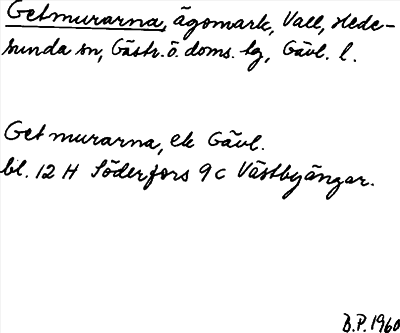 Getmurarna, ägomark, Vall, Hede-
sunda sn, Gästr. ö. doms. lg, Gävl. l.
Getmurarna, ek Gävl.
bl. 12 H Söderfors 9 c Västbyängar.
B.P. 1960